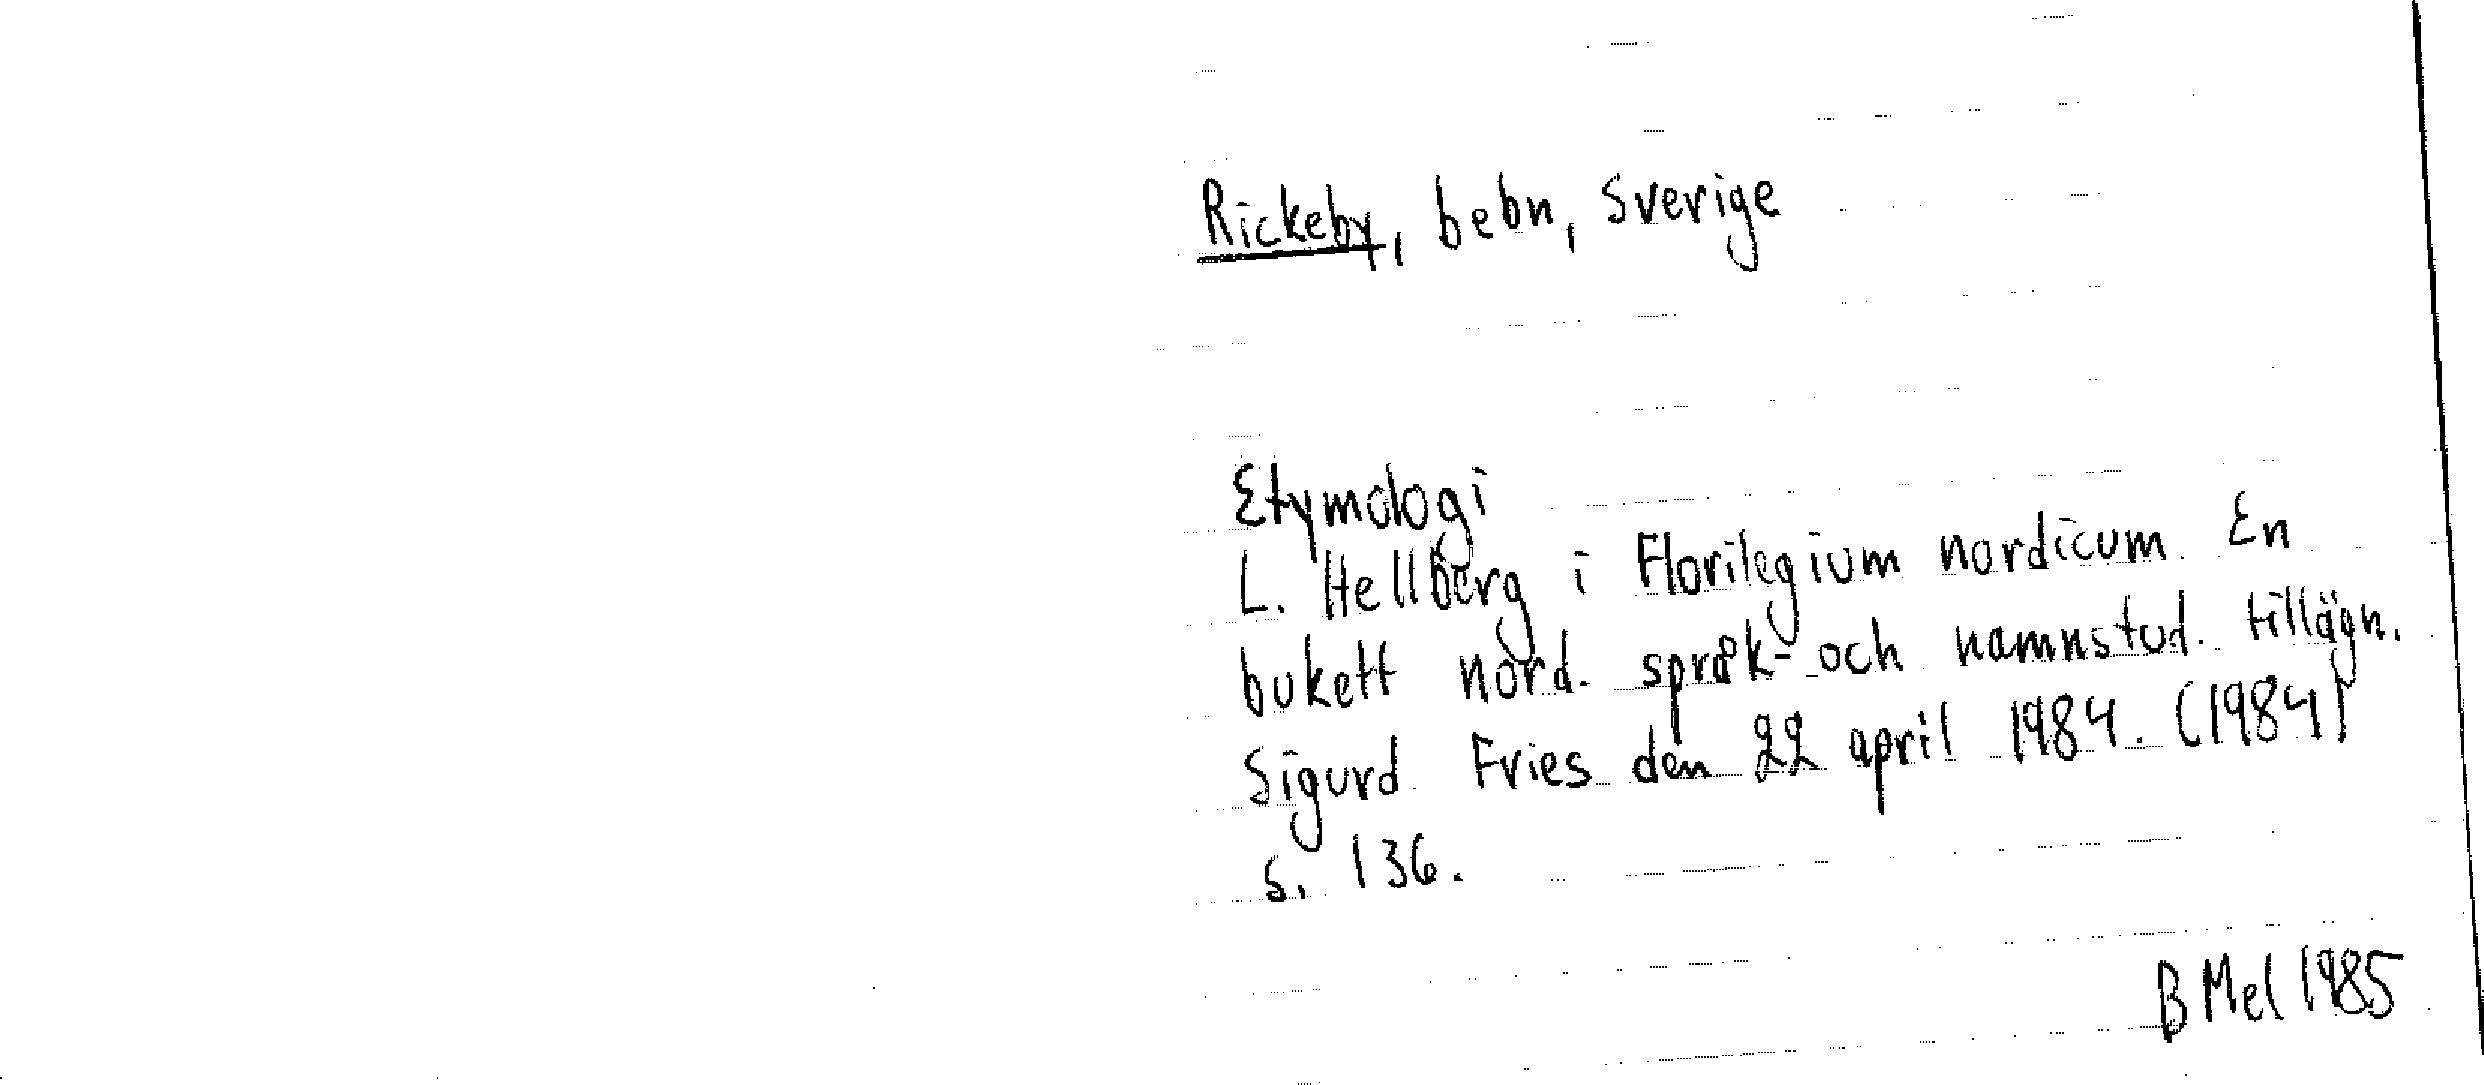 Rickeby, bebn, Sverige
Etymologi
L. Hellberg i Florilegium nordicum. En
bukett nord. språk- och namnstud. tillägn.
Sigurd Fries den 22 april 1984. (1984)
s. 136.
B Mel 1985